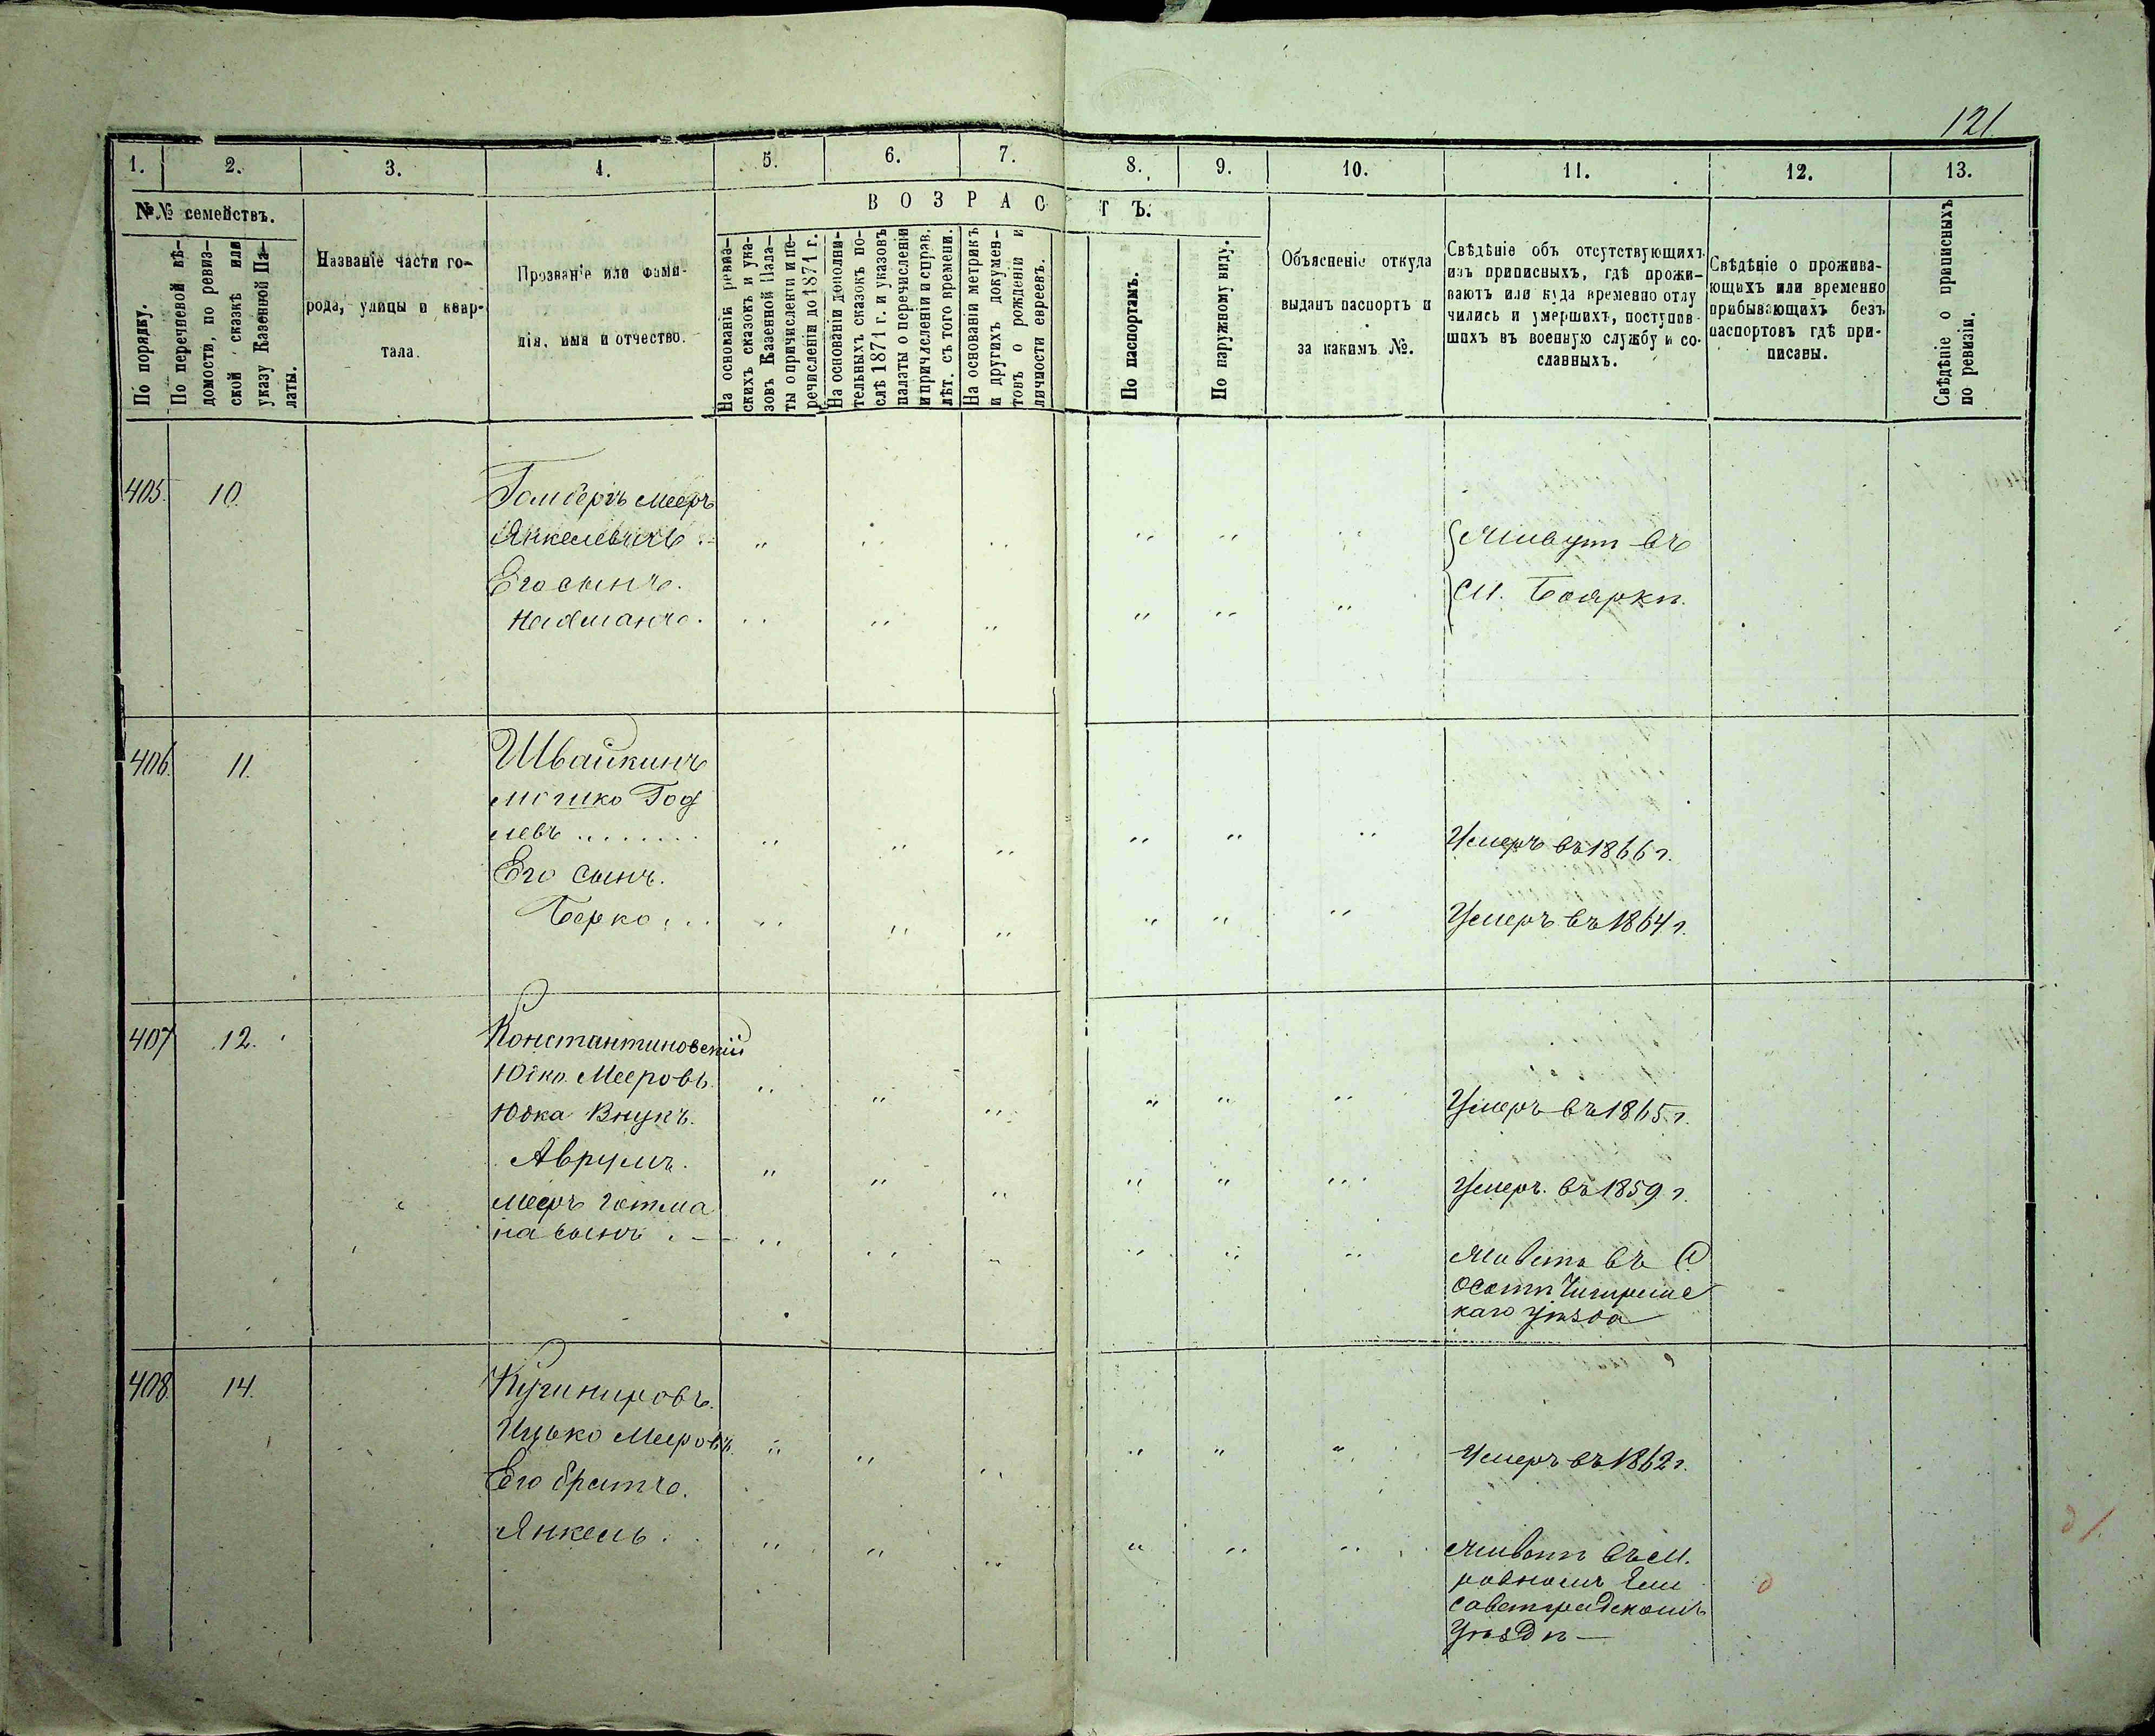 121.
1.
2.
3.
4.
5.
6.
7.
8.
9.
10.
11.
12.
13.
№№ семействъ.
ВОЗРАСТЪ.
По порядку.
По перечневой вѣ-
домости, по ревиз-
ской сказкѣ или
указу Казенной Па-
латы.
Названіе части го-
рода, улицы и квар-
тала.
Прозваніе или фами-
лія, имя и отчество.
На основаніи ревиз-
скихъ сказокъ и ука-
зовъ Казенной Пала-
ты о причисленіи и пе-
речисленіи до 1871 г.
На основаніи дополни-
тельныхъ сказокъ по-
слѣ 1871 г. и указовъ
палаты о перечисленіи
и причисленіи и справ.
лѣт. съ того времени.
На основаніи метрикъ
и другихъ докумен-
товъ о рожденіи и
личности евреевъ.
По паспортамъ.
По наружному виду.
Объясненіе откуда
выданъ паспортъ и
за какимъ №.
Свѣдѣніе объ отсутствующихъ
изъ приписныхъ, гдѣ прожи-
ваютъ или куда временно отлу
чились и умершихъ, поступов-
шихъ въ военную службу и со-
славныхъ.
Свѣдѣніе о прожива-
ющихъ или временно
прибывающихъ безъ
паспортовъ гдѣ при-
писаны.
Свѣдѣніе о приписныхъ
по ревизіи.
405. 10.
Гамбергъ Мееръ
Янкелевичъ
Его сынъ.
Нахманъ.
Живутъ въ
м. Бояркѣ.
406. 11.
Швайкинъ
Мошко Год
левъ
Его сынъ.
Берко
Умеръ въ 1866 г.
Умеръ въ 1864 г.
407 12.
Константиновскій
Юско Мееровъ
Юска Внукъ.
Аврумъ.
Мееръ Гетма
на сынъ
Умеръ въ 1865 г.
Умеръ въ 1859 г.
Живетъ въ С.
Осотѣ Чигиринс
каго уѣзда
408. 14.
Кушнировъ.
Ицько Мееровъ.
Его братъ.
Янкель.
Умеръ въ 1862 г.
Живетъ въ м.
ровномъ Ели
саветградскомъ
уѣздѣ